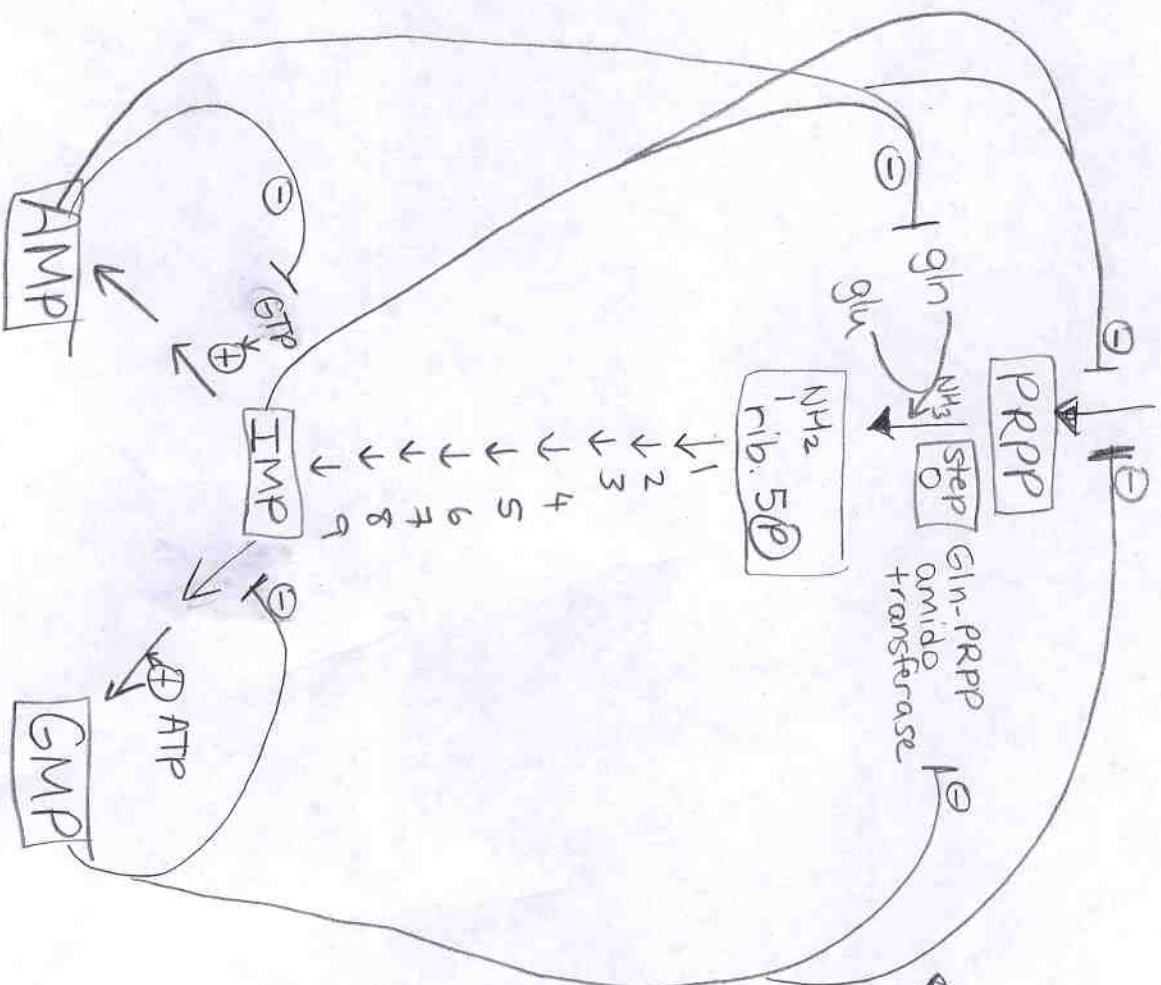 ⊖
⊖
PRPP
gln
NH3
Step
0
Gln-PRPP
amido
transferase
glu
⊖
⊖
NH2
rib. 5Ⓟ
1
2
3
4
5
6
7
8
9
IMP
GTP
⊕
⊖
⊖
⊕ ATP
AMP
GMP